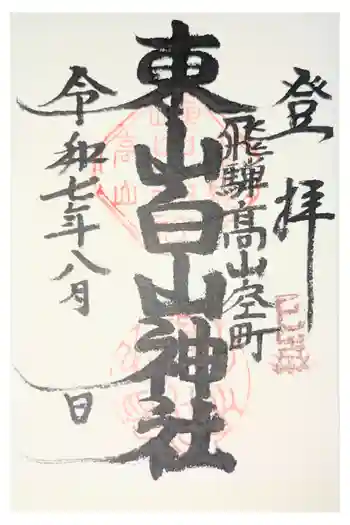 登拝
飛騨高山空町
東山白山神社
令和七年八月 日